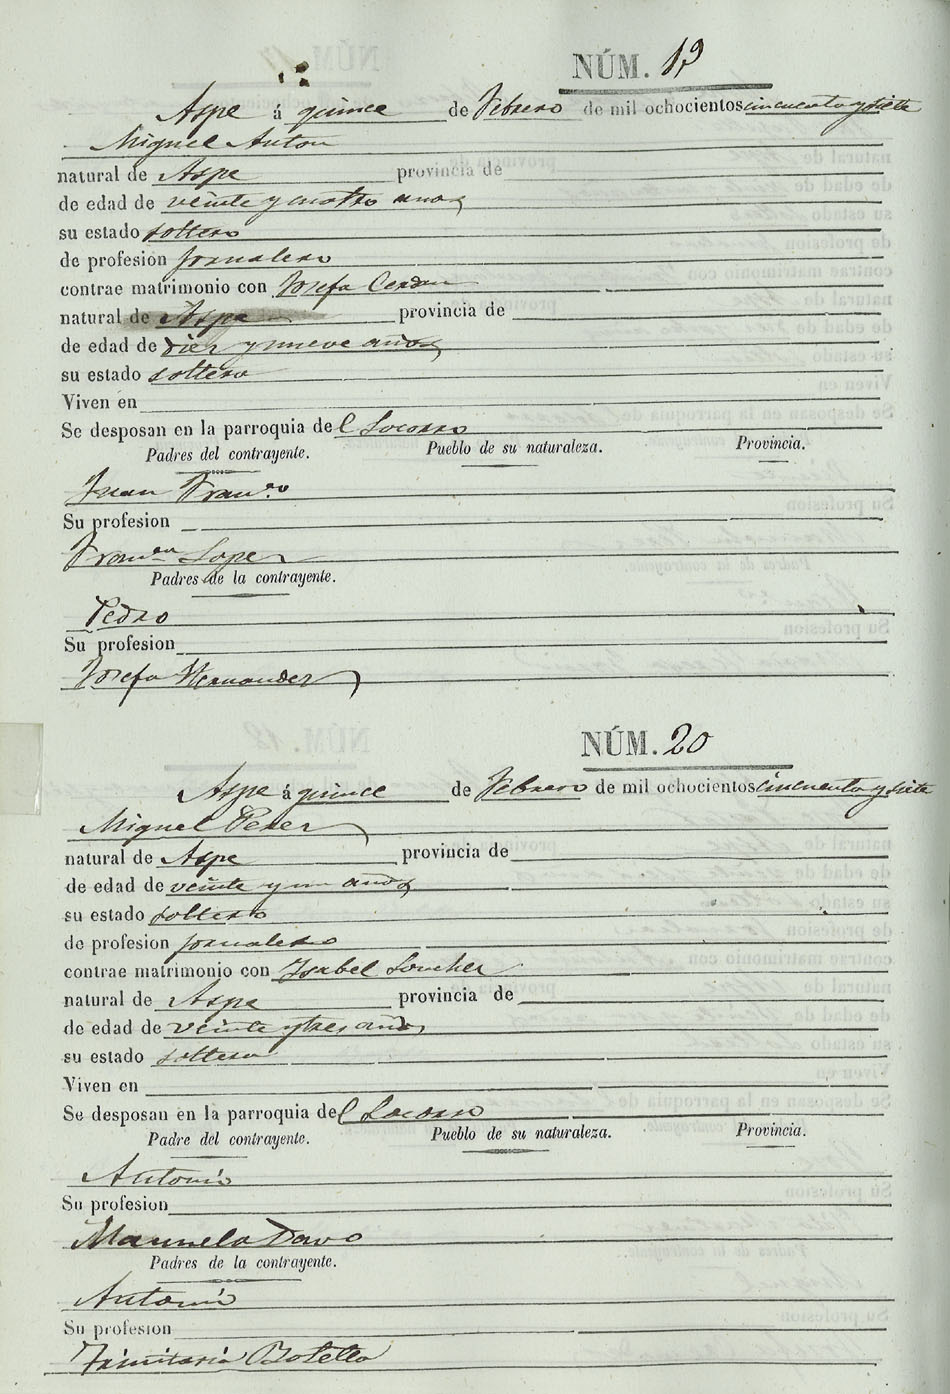 NÚM. 19
Aspe á quince de Febrero de mil ochocientos cincuenta y siete
Miguel Anton
natural de Aspe provincia de
de edad de veinte y cuatro años
su estado soltero
de profesion jornalero
contrae matrimonio con Josefa Cerdan
natural de Aspe provincia de
de edad de diez y nueve años
su estado soltera
Viven en
Se desposan en la parroquia del Socorro
Padres del contrayente. Pueblo de su naturaleza. Provincia.
Juan Franco
Su profesion
Franca Lopez
Padres de la contrayente.
Pedro
Su profesion
Josefa Hernandez
NÚM. 20
Aspe á quince de Febrero de mil ochocientos cincuenta y siete
Miguel Perez
natural de Aspe provincia de
de edad de veinte y un años
su estado soltero
de profesion jornalero
contrae matrimonio con Isabel Sanchez
natural de Aspe provincia de
de edad de veinte y tres años
su estado soltera
Viven en
Se desposan en la parroquia del Socorro
Padre del contrayente. Pueblo de su naturaleza. Provincia.
Antonio
Su profesion
Manuela Davo
Padres de la contrayente.
Antonio
Su profesion
Trinitaria Botella